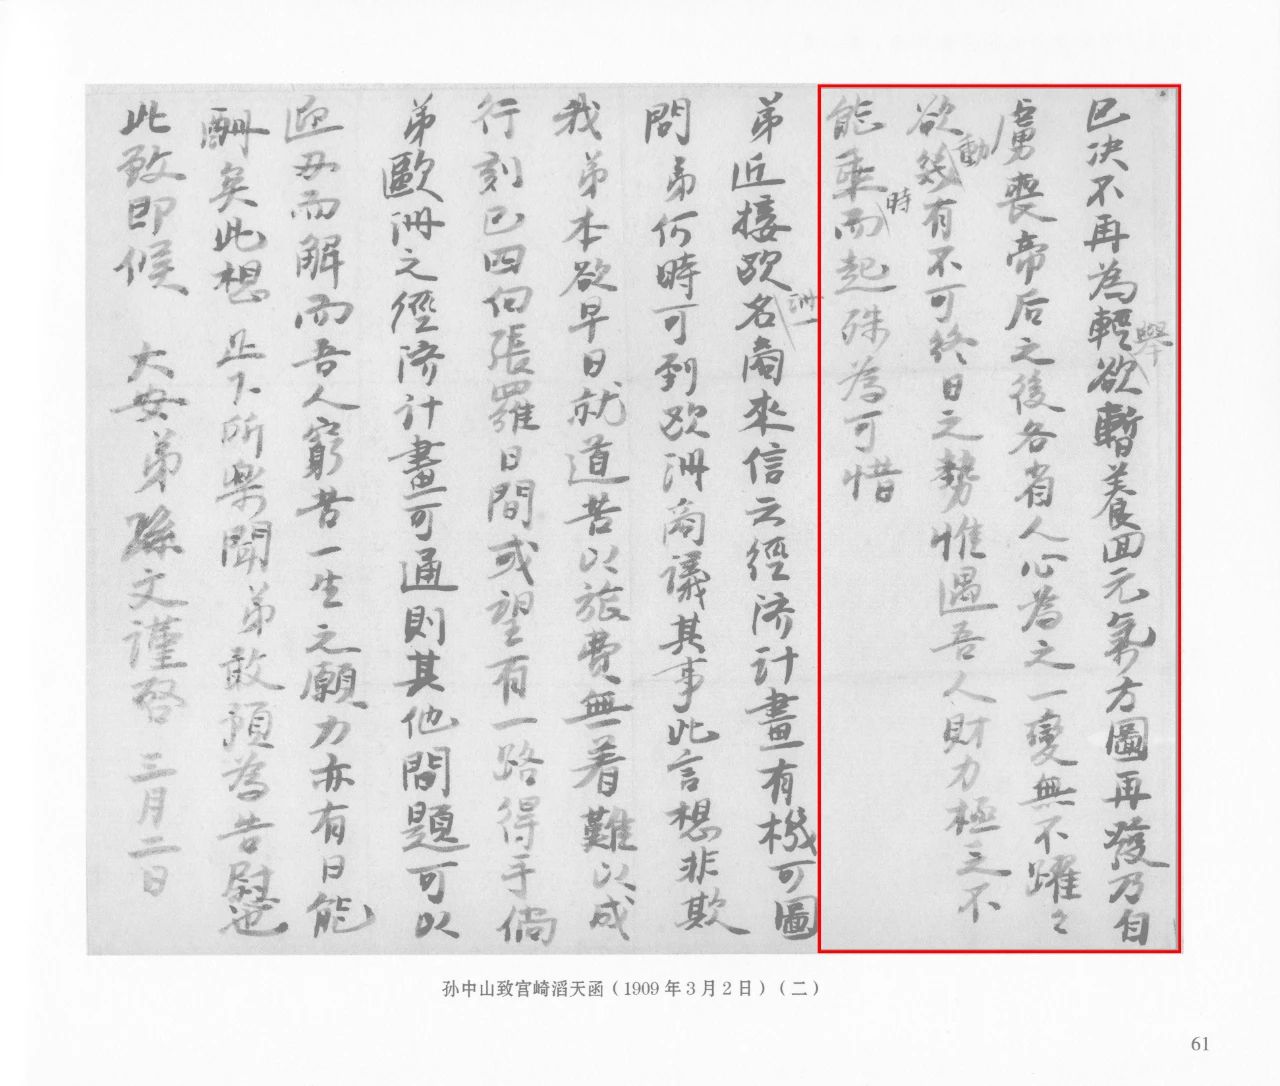 已决不再為輕舉欲暫養回元氣方圖再發乃自
虜喪帝后之後各省人心為之一變無不躍々
欲動幾有不可終日之勢惟遇吾人財力極乏不
能乘時而起殊為可惜
弟近接欧洲一名商來信云經济計畫有機可圖
問弟何時可到欧洲商議其事此言想非欺
我弟本欲早日就道苦以旅費無着難以成
行刻已四向張羅日間或望有一路得手倘
弟歐洲之經济計畫可通則其他問題可以
迎刃而解而吾人窮苦一生之願力亦有日能
酬矣此想 足下所樂聞弟敢預為告慰也
此致即候 大安弟孫文謹啓 三月二日
孙中山致宫崎滔天函（1909 年 3 月 2 日）（二）
61